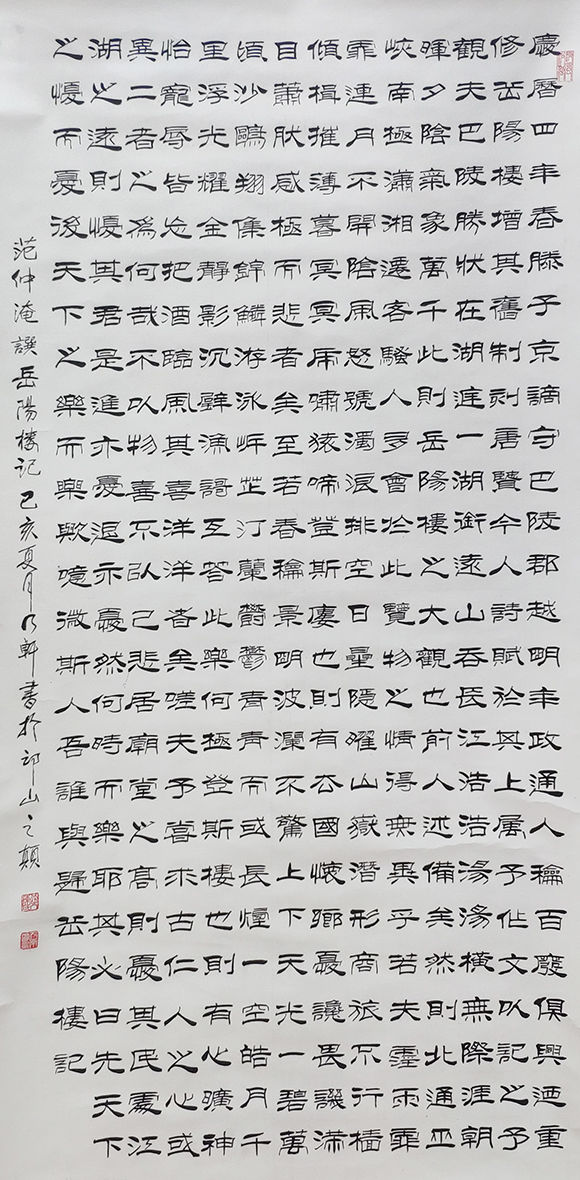 慶曆四年春滕子京謫守巴陵郡越明年政通人龢百廢俱興迺重
修岳陽樓增其舊制刻唐賢今人詩賦於其上屬予作文以記之予
觀夫巴陵勝狀在湖庭一湖銜遠山吞長江浩浩湯湯橫無際涯朝
暉夕陰氣象萬千此則岳陽樓之大觀也前人述備矣然則北通巫
峽南極瀟湘遷客騷人多會於此覽物之情得無異乎若夫霪雨霏
霏連月不開陰風怒號濁浪排空日星隱曜山嶽潛形商旅不行檣
傾楫摧薄暮冥冥虎嘯猿啼登斯廔也則有去國懷鄉憂讒畏譏滿
目蕭肰感極而悲者矣至若春龢景明波瀾不驚上下天光一碧萬
頃沙鷗翔集錦鱗游泳岸芷汀蘭鬱鬱青青而或長煙一空皓月千
里浮光耀金靜影沉璧漁謌互答此樂何極登斯樓也則有心曠神
怡寵辱皆忘把酒臨風其喜洋洋者矣嗟夫予嘗求古仁人之心或
異二者之為何哉不以物喜不以己悲居廟堂之高則憂其民處江
湖之遠則憂其君是進亦憂退亦憂然何時而樂耶其必曰先天下
之憂而憂後天下之樂而樂歟噫微斯人吾誰與歸岳陽樓記
范仲淹譔岳陽樓記己亥夏月乃軒書於邙山之顛